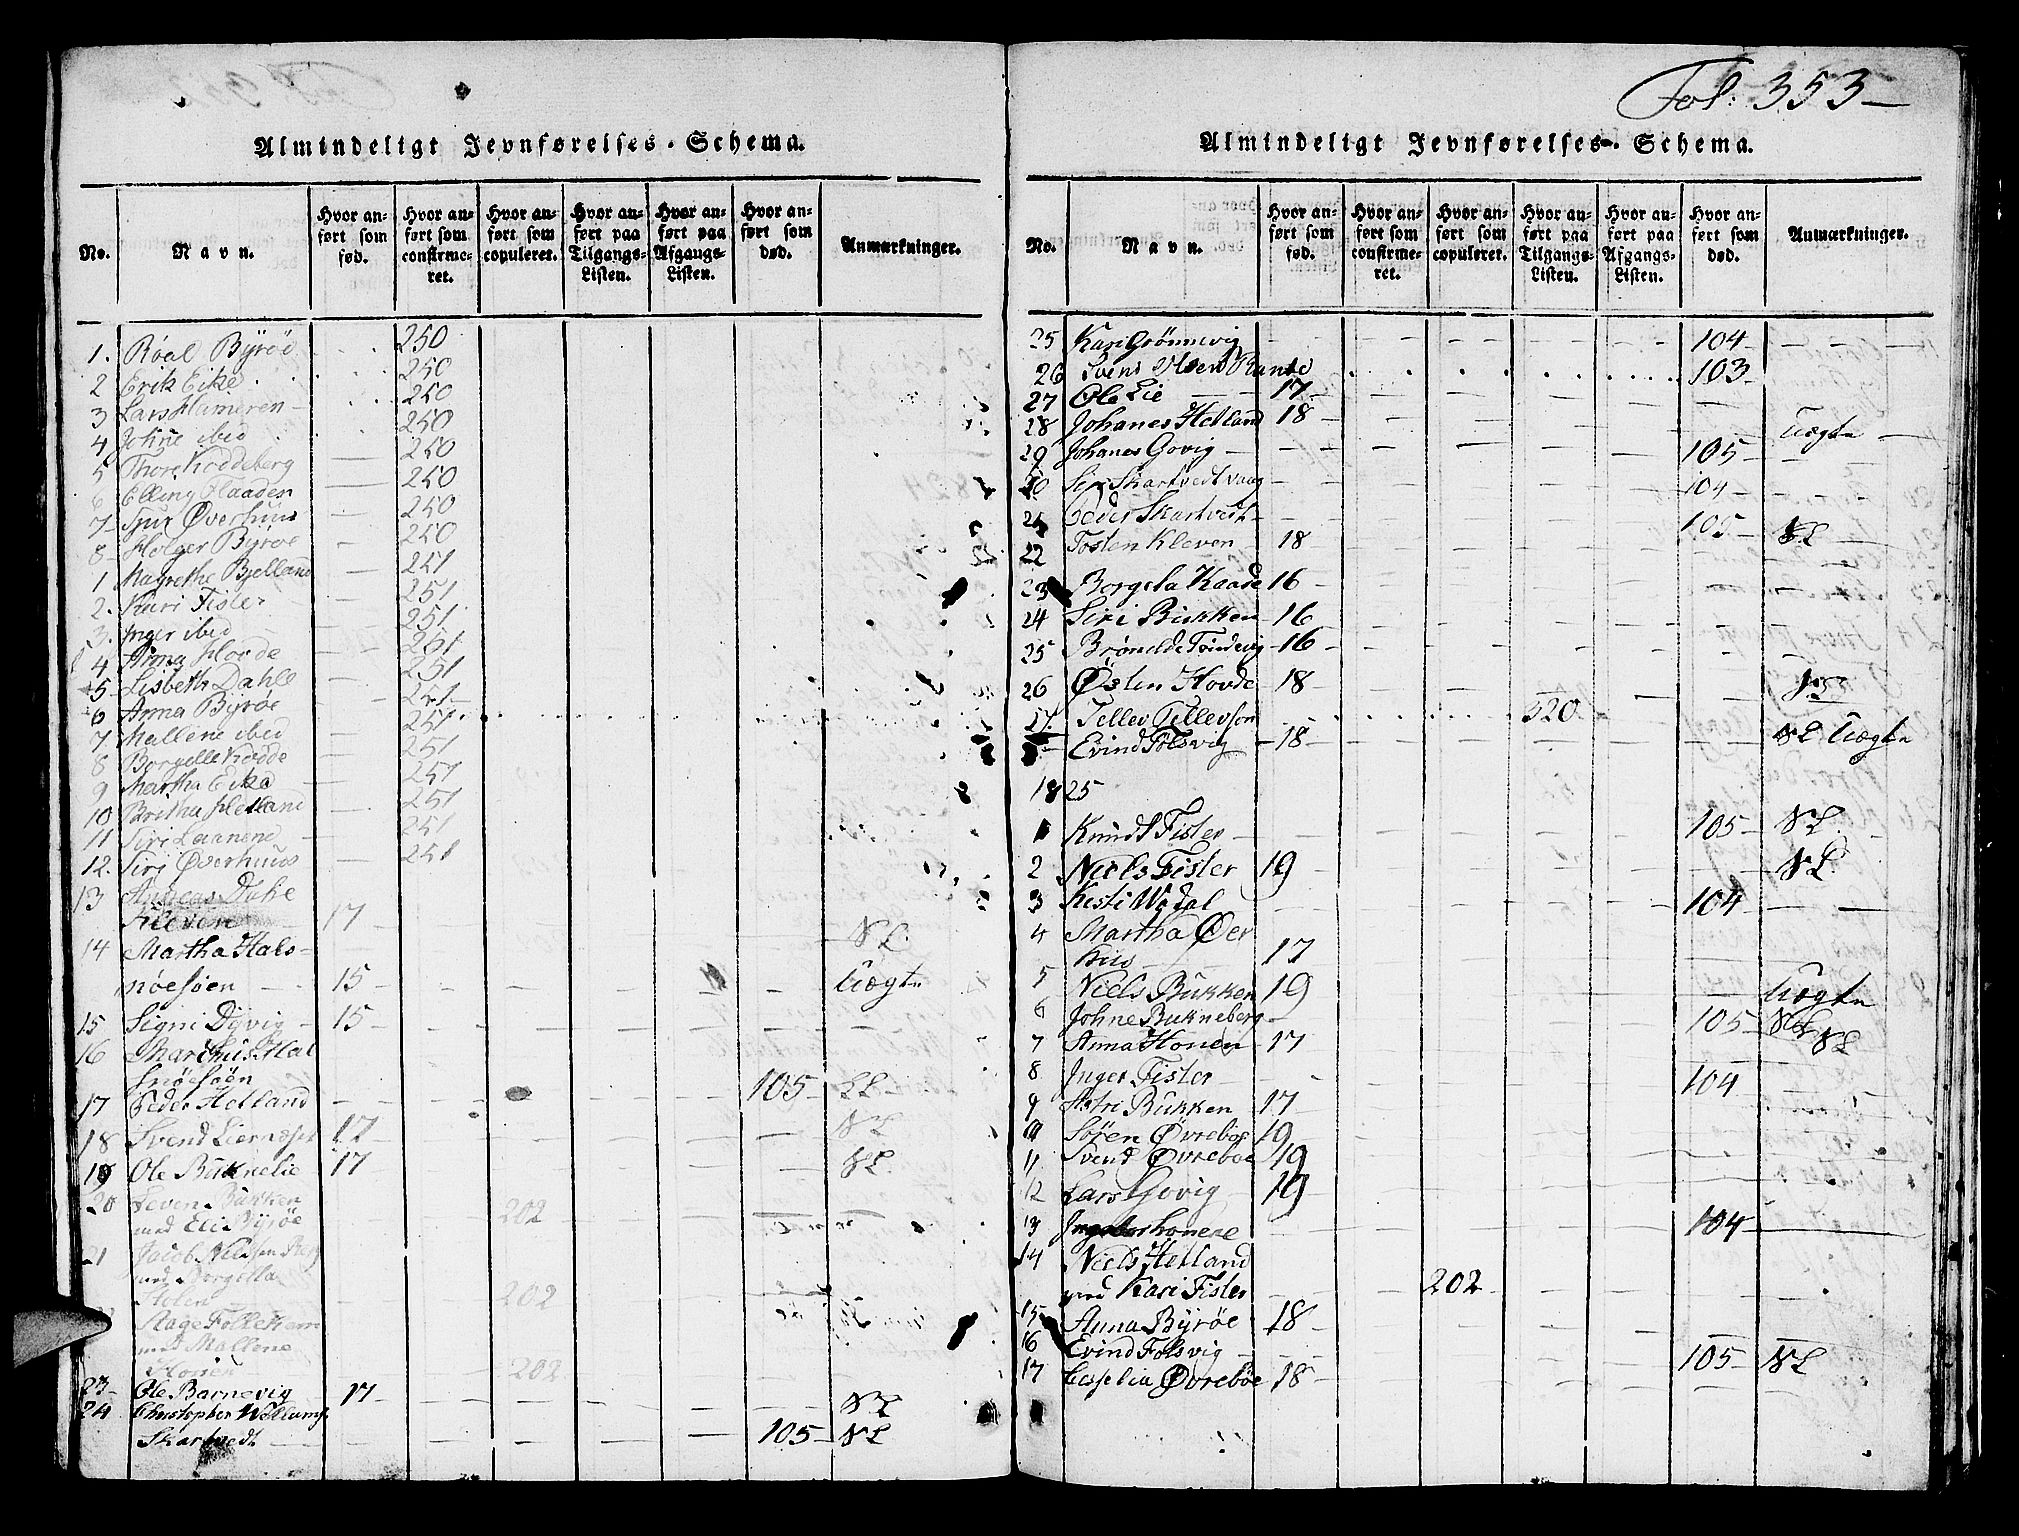 Fol: 353
Almindeligt Jevnførelses-Schema.
No. Navn. Hvor anført som fød. Hvor anført som confirmeret. Hvor anført som copuleret. Hvor anført paa Tilgangs-Listen. Hvor anført paa Afgangs-Listen. Hvor anført som død. Anmærkninger.
1. Roal Byrøe 250
2 Erik Eike 250
3 Lars Hameren 250
4 Johne ibid 250
5 Thore Kaadeberg 250
6 Elling Haaden 250
7 Sjur Øverhuus 250
8 Holger Byrøe 250
1 Magrethe Bjelland 251
2. Kari Fister 251
3. Inger ibid 251
4 Anna Hovde 251
5 Lisbeth Dahle 251
6 Anna Byrøe 251
7 Mallene ibid 251
8 Borgelle Kodde 251
9 Martha Eike 251
10 Britha Hetland 251
11 Siri Laanene 251
12. Siri Øverhuus 251
13 Andreas Dahle
Kleven 17 NL.
14 Martha Hals-
nøesøen 15 Uægte
15 Signi Dyvig 15
16 Marthus Hal
snøesøen 105 LL
17 Peder Hetland
18 Svend Liernæsset 17 NL
19 Ole Buknelie 17 NL
20 Steven Bukken
med Eli Byrøe 202
21 Jacob Nielsen Berg
med Borgella
Holen 202
Aage Folkeham
med Mallene
202
23 Ole Barnevig 17 NL
24 Christopher Willums.
Skartvedt 105 NL
Almindeligt Jevnførelses-Schema.
No. Navn. Hvor anført som fød. Hvor anført som confirmeret. Hvor anført som copuleret. Hvor anført paa Tilgangs-Listen. Hvor anført paa Afgangs-Listen. Hvor anført som død. Anmærkninger.
25 Kari Grønnevig 104
26 Svend Olsen Rande 103
27 Ole Lie 17
28 Johanes Hetland 18 Uægte
29 Johanes Govig 105
20 Siri Skartvedtvaag 104
21 Peder Skartvedt 105 NL
22 Tosten Kleven 18
23 Borgela Kaade 16
24 Siri Bukken 16
25 Brønelde Tindevig 16
26 Østen Hovde 18
27 Tellev Tellevsen 320
Evind Folsvig 18 NL Uægte
1825
1 Knud Fister 105 NL
2 Niels Fister 19 NL
3 Kesti Wadal 104
4 Martha Øer
huus 17
5 Niels Bukken 19 Uægte
6 Johne Bukneberg 105 NL
7 Anna Honen 17 NL
8 Inger Fister 104
9 Astri Bukken 17
10 Søren Øvrebøe 19
11 Svend Øvrebøe 19
12 Lars Govig 19
13 Ingebor honene 104
14 Niels Hetland
med Kari Fister 202
15 Anna Byrøe 18
16 Evind Folsvig 105 NL
17 Cesselia Øvrebøe 18